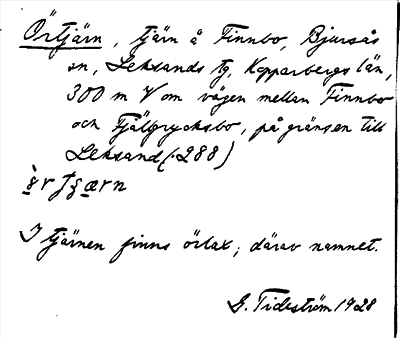 Örtjärn, tjärn å Finnbo, Bjursås
sn, Leksands tg, Kopparbergs län,
300 m V om vägen mellan Finnbo
och Fjälgrycksbo, på gränsen till
Leksand (·288)
I tjärnen finns örlax; därav namnet.
G. Tideström 1928